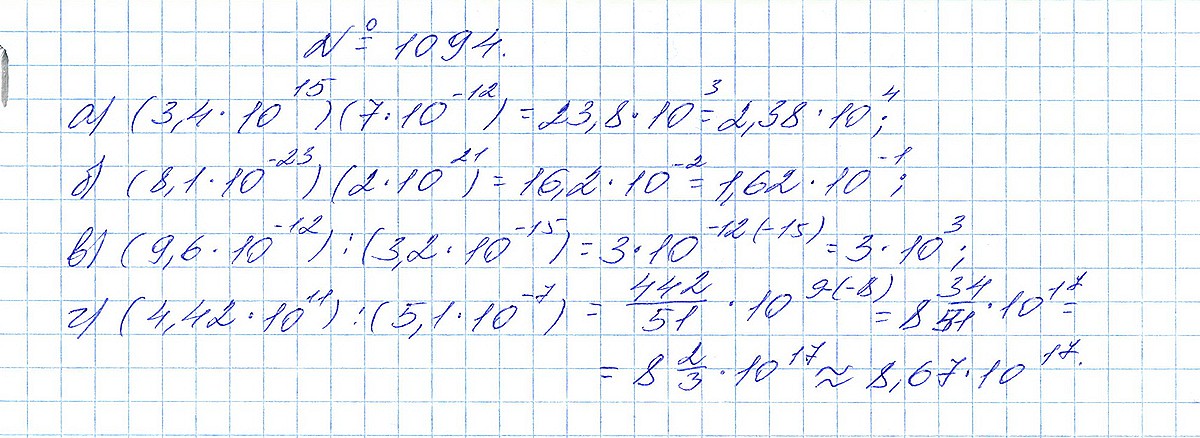 № 1094.
а) (3,4·10¹⁵)(7·10⁻¹²) = 23,8·10³ = 2,38·10⁴;
б) (8,1·10⁻²³)(2·10²¹) = 16,2·10⁻² = 1,62·10⁻¹;
в) (9,6·10⁻¹²):(3,2·10⁻¹⁵) = 3·10⁻¹²⁽⁻¹⁵⁾ = 3·10³;
г) (4,42·10¹¹):(5,1·10⁻⁷) = 442/51 · 10⁹⁻⁽⁻⁸⁾ = 8 34/51 · 10¹⁷ =
= 8 2/3 · 10¹⁷ ≈ 8,67·10¹⁷.